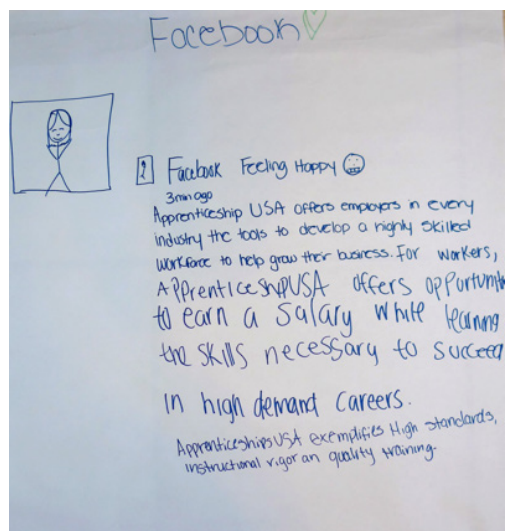 Facebook
2 Facebook Feeling Happy
3min ago
Apprenticeship USA offers employers in every
industry the tools to develop a highly skilled
workforce to help grow their business. For workers,
ApprenticeshipUSA offers opportunit
to earn a salary while learning
the skills necessary to succeed
in high demand careers.
ApprenticeshipsUSA exemplifies High standards,
instructional rigor an quality training.